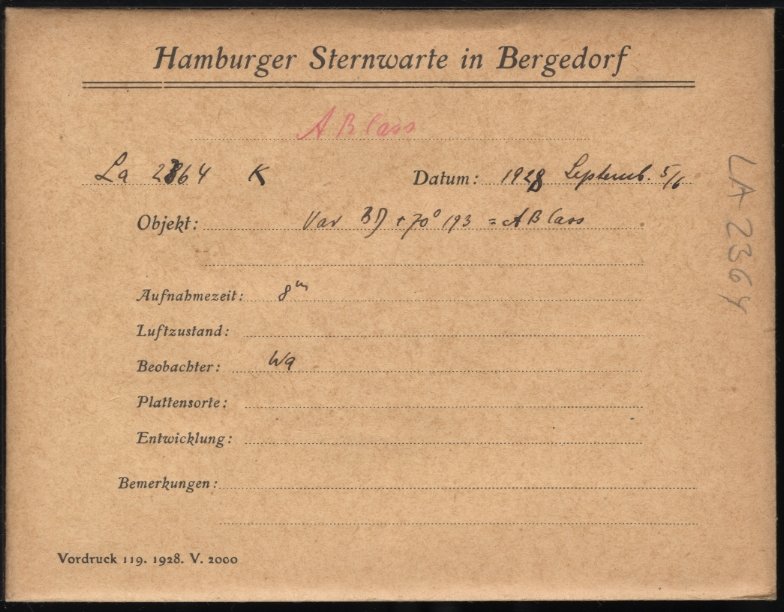 Hamburger Sternwarte in Bergedorf
AB Cass
La 2364 K Datum: 1928 Septemb. 5/6
Objekt: Var BD +70° 193 = AB Cass
Aufnahmezeit: 8m
Luftzustand:
Beobachter: Wa
Plattensorte:
Entwicklung:
Bemerkungen:
Vordruck 119. 1928. V. 2000
LA 2364